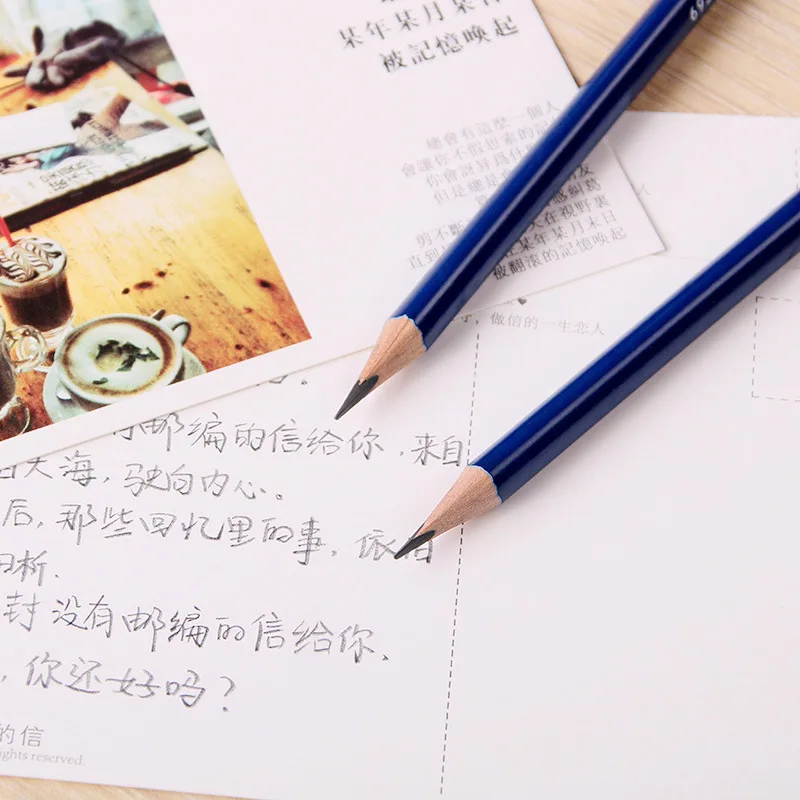 某年某月某日
被記憶喚起
總會有這麼一個人
會讓你不假思索的記
你會訝异爲什
但是總是
感糾葛
剪不斷 天在視野裏
直到 在某年某月末日
被翻滾的記憶喚起
69
做信的一生恋人
邮编的信给你，来自
大海，驶向内心。
后，那些回忆里的事，依旧
晰.
封没有邮编的信给你，
，你还好吗？
的信
ights reserved.